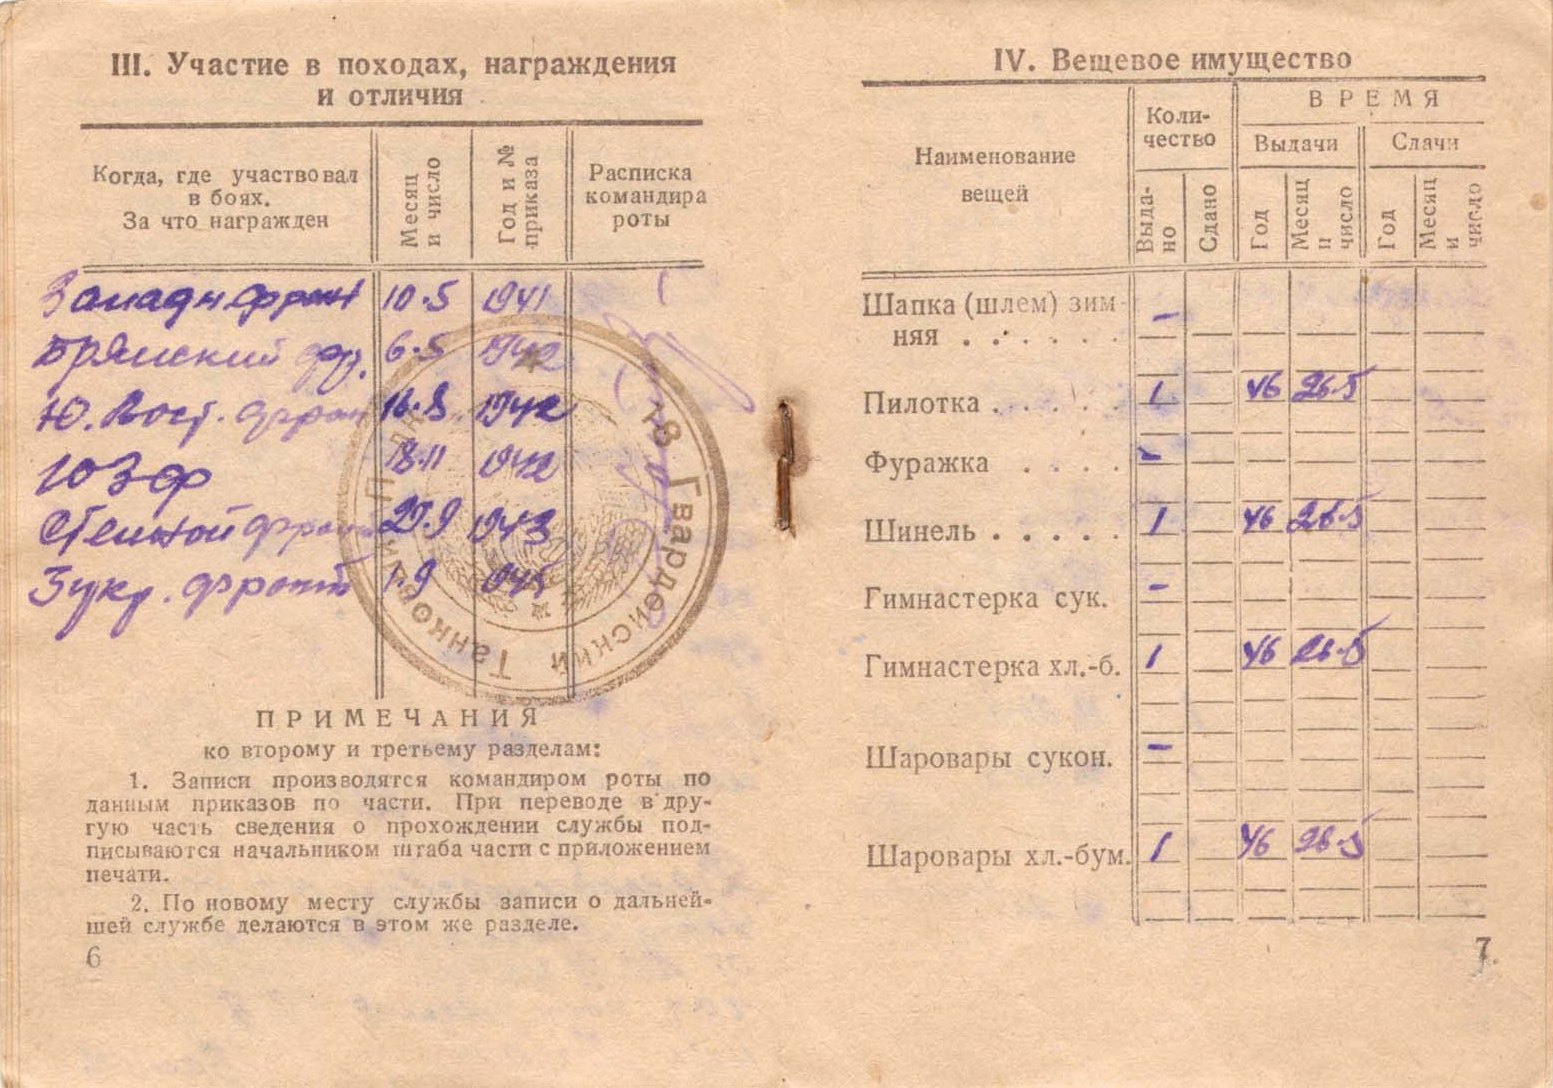 III. Участие в походах, награждения
и отличия
Когда, где участвовал
в боях.
За что награжден
Месяц
и число
Год и №
приказа
Расписка
командира
роты
Западн. фронт 10.5 1941
Брянский фр. 6.5 1942
Ю. Вост. фрон 16.8 1942
ЮЗФ 18.11 1942
Степной фронт 20.9 1943
3 укр. фронт 1.9 1945
18 Гвардейский Танковый Полк
ПРИМЕЧАНИЯ
ко второму и третьему разделам:
1. Записи производятся командиром роты по
данным приказов по части. При переводе в дру-
гую часть сведения о прохождении службы под-
писываются начальником штаба части с приложением
печати.
2. По новому месту службы записи о дальней-
шей службе делаются в этом же разделе.
6
IV. Вещевое имущество
Наименование
вещей
Коли-
чество
ВРЕМЯ
Выдачи
Сдачи
Выда-
но
Сдано
Год
Месяц
и
число
Год
Месяц
и
число
Шапка (шлем) зим-
няя . . . . . . –
Пилотка . . . . . 1 46 26.5
Фуражка . . . . –
Шинель . . . . . 1 46 26.5
Гимнастерка сук. –
Гимнастерка хл.-б. 1 46 26.5
Шаровары сукон. –
Шаровары хл.-бум. 1 46 26.5
7